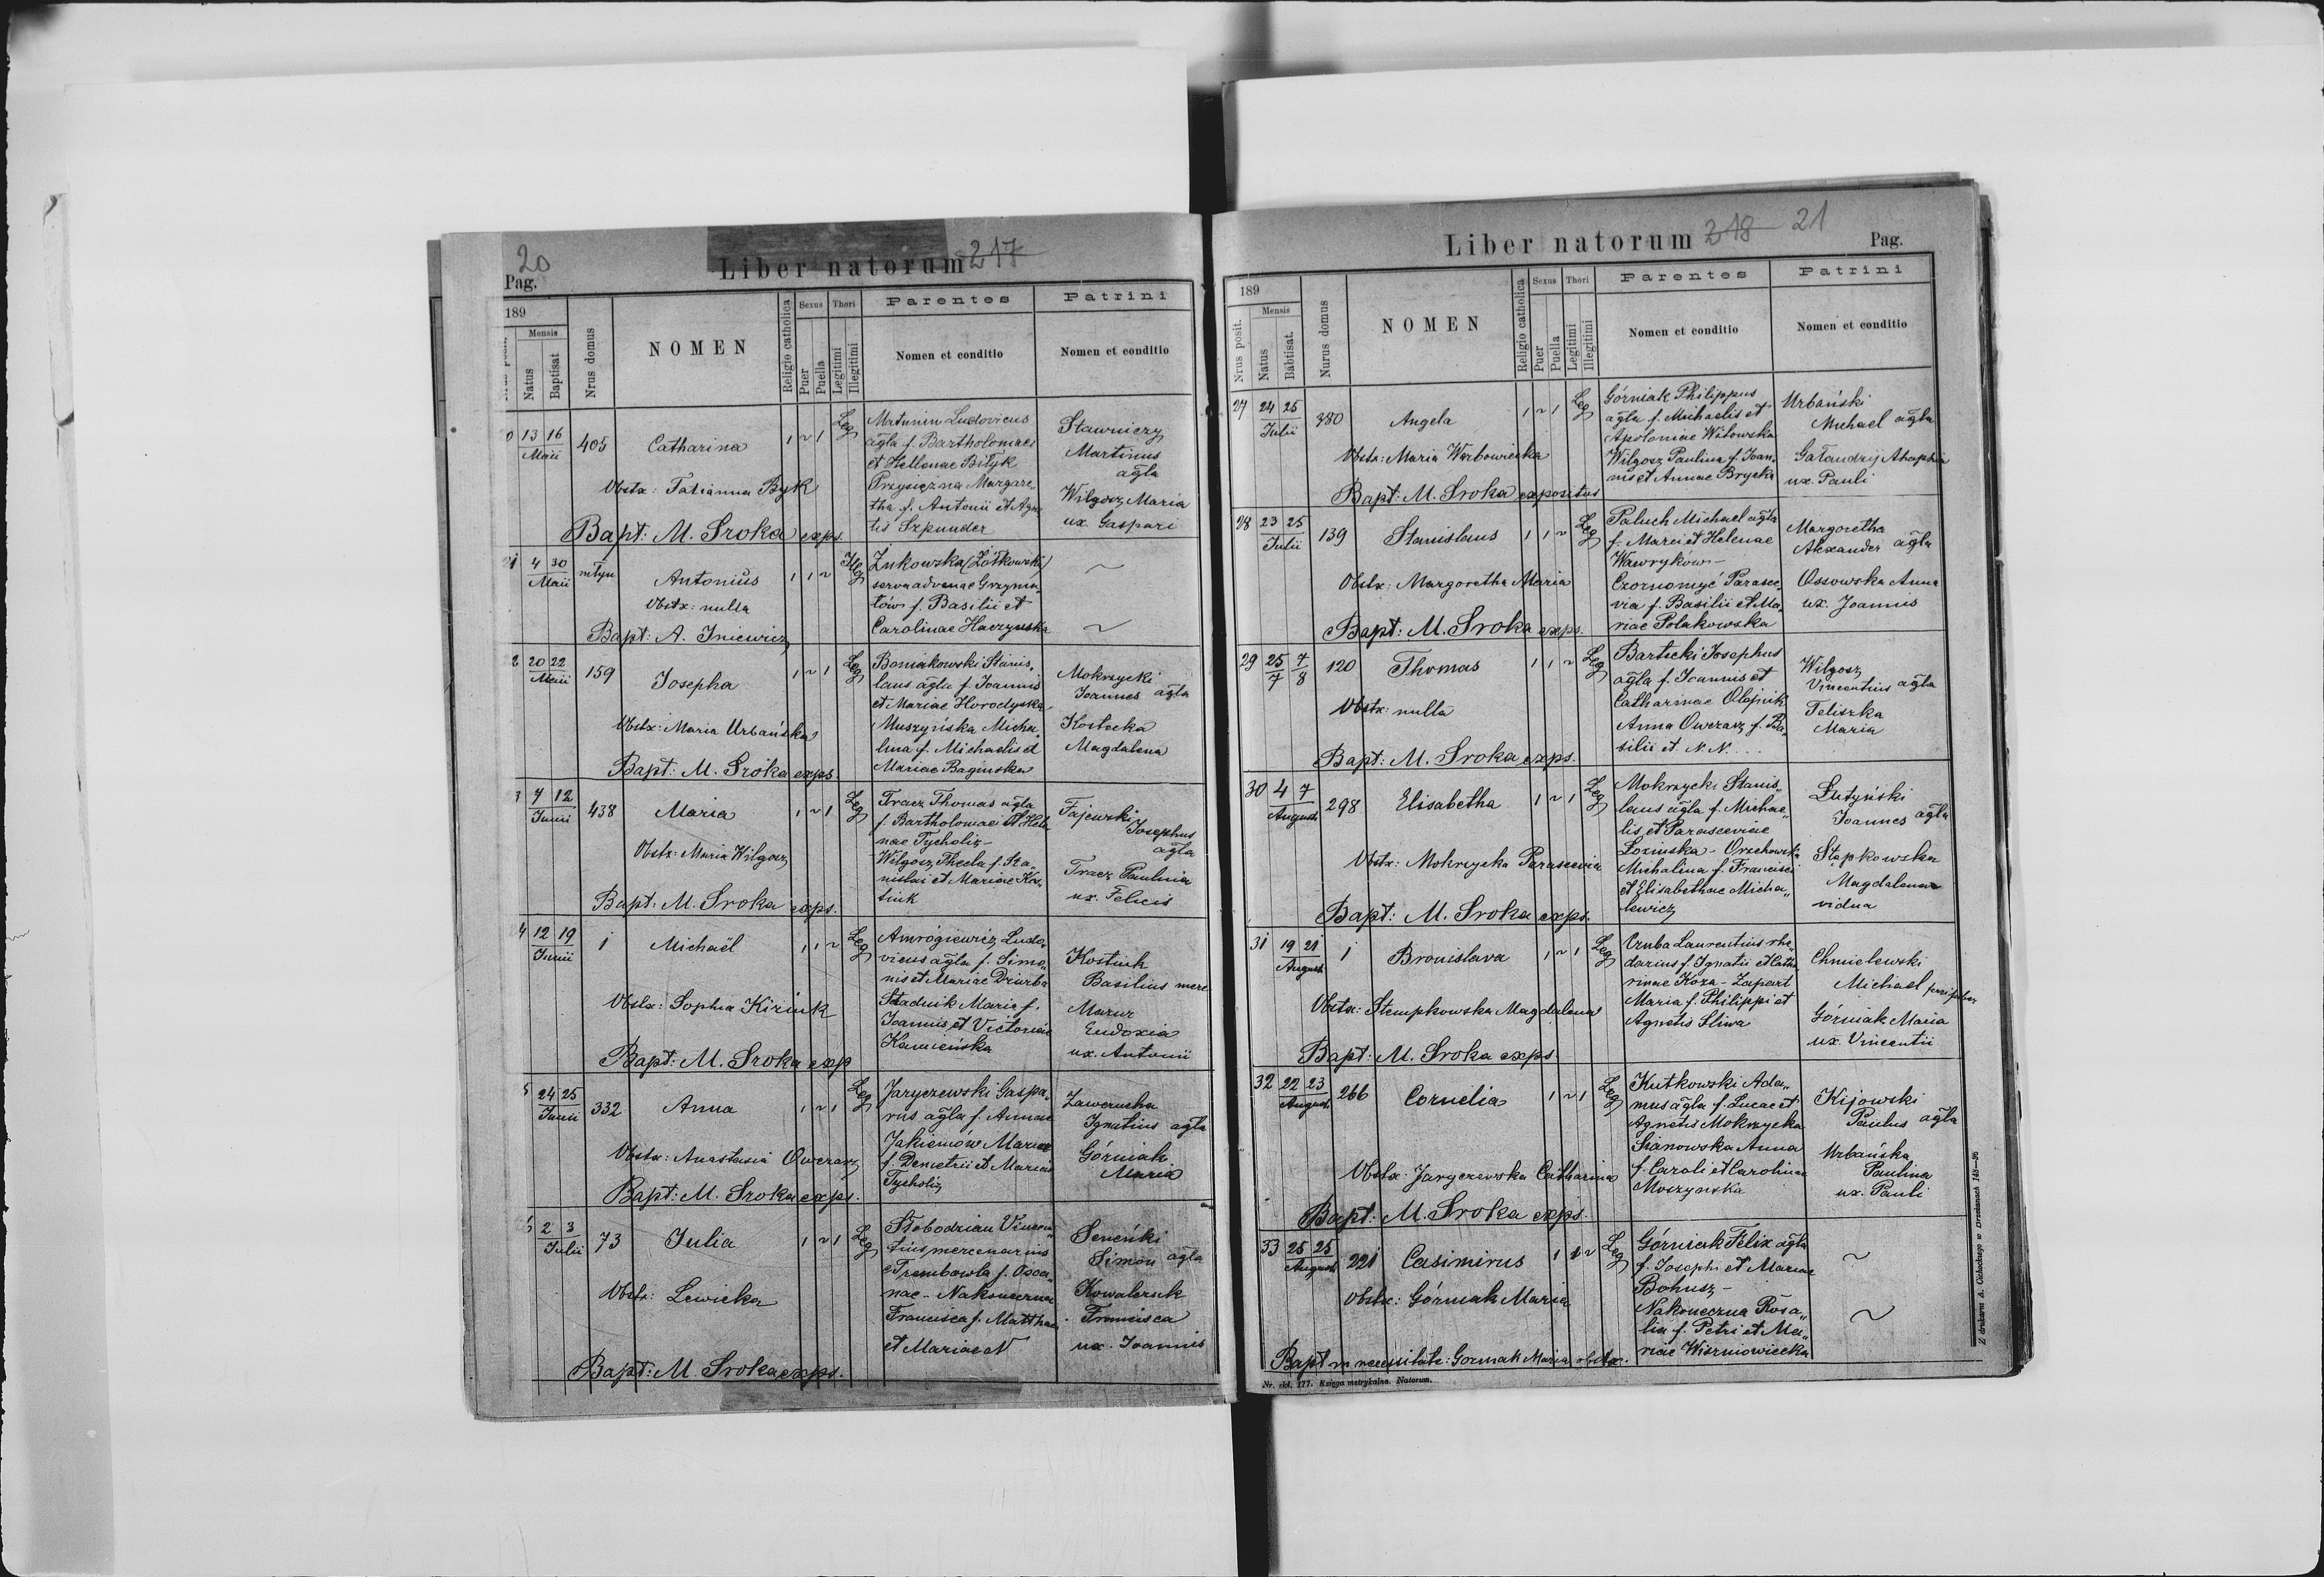 20
Pag.
Liber natorum 217
189
Mensis
Natus
Baptisat
Nrus domus
NOMEN
Religio catholica
Sexus
Puer
Puella
Thori
Legitimi
Illegitimi
Parentes
Nomen et conditio
Patrini
Nomen et conditio
13 16
Maii
405
Catharina
1 ~ 1
Leg
Ludovicus
agla f. Bartholomaei
et Hellenae Bilyk
Przysiężna Margare„
tha f. Antonii et Agne
tis Szpunder
Sławniczy
Martinus
agla
Wilgosz Maria
ux. Gaspari
Obstx: Tatianna Byk
Bapt: M. Sroka exps.
21
4 30
Maii
młyn
Antonius
1 1 ~
Illeg
Żukowska (Żółkowska)
serva advenae Grzyma„
tów f. Basilii et
Carolinae Haczyńska
~
~
Obstx: nulla
Bapt: A. Iniewicz
2
20 22
Maii
159
Josepha
1 ~ 1
Leg
Boniakowski Stanis„
laus agla f. Joannis
et Mariae Horodyska
Muszyńska Micha„
lina f. Michaelis et
Mariae Baginska
Mokrzycki
Joannes agla
Kostecka
Magdalena
Obstx: Maria Urbańska
Bapt: M. Sroka exps.
3
7 12
Junii
438
Maria
1 ~ 1
Leg
Tracz Thomas agla
f. Bartholomaei et Hele
nae Tycholiz -
Wilgosz Thecla f. Sta„
nislai et Mariae Kos„
tiuk
Fajewski
Josephus
agla
Tracz Paulina
ux. Felicis
Obstx: Maria Wilgosz
Bapt: M. Sroka exps.
4
12 19
Junii
1
Michaël
1 1 ~
Leg
Amrógiewicz Ludo„
vicus agla f. Simo„
nis et Mariae Dziurba
Stadnik Maria f.
Joannis et Victoriae
Kamieńska
Kostiuk
Basilius merc
Mazur
Eudoxia
ux. Antonii
Obstx: Sophia Kiziuk
Bapt: M. Sroka exp
5
24 25
Junii
332
Anna
1 ~ 1
Leg
Jaryczewski Gaspa„
rus agla f. Annae
Jakiemów Maria
f. Demetrii et Mariae
Tycholiz
Zawerucha
Ignatius agla
Górniak
Maria
Obstx: Anastasia Owczarz
Bapt: M. Sroka exps.
2 3
Julii
73
Julia
1 ~ 1
Leg
Słobodzian Vincen„
tius mercenarius
e Trembowla f. Oxa„
nae - Nakoneczna
Francisca f. Matthaei
et Mariae N
Seneńki
Simon agla
Kowalczuk
Francisca
ux. Joannis
Obstx: Lewicka
Bapt: M. Sroka exps.
Liber natorum 218 21
Pag.
189
Nrus posit.
Mensis
Natus
Babtisat.
Nurus domus
NOMEN
Religio catholica
Sexus
Puer
Puella
Thori
Legitimi
Illegitimi
Parentes
Nomen et conditio
Patrini
Nomen et conditio
27
24 25
Julii
380
Angela
1 ~ 1
Leg
Górniak Philippus
agla f. Michaelis et
Apoloniae Witowska
Wilgosz Paulina f. Joan„
nis et Annae Brycka
Urbański
Michael agla
Gałandzij Ahaphia
ux. Pauli
Obstx: Maria Werbowiecka
Bapt: M. Sroka expositus
28
23 25
Julii
139
Stanislaus
1 1 ~
Leg
Paluch Michael agla
f. Marci et Helenae
Wawryków -
Czornomyć Parasce„
via f. Basilii et Ma„
riae Polakowska
Margoretha
Alexander agla
Ossowska Anna
ux. Joannis
Obstx: Margoretha Maria
Bapt: M. Sroka exps.
29
25 7
7 8
120
Thomas
1 1 ~
Leg
Bartecki Josephus
agla f. Joannis et
Catharinae Olejnik
Anna Owczarz f. Ba„
silii et N.N. ...
Wilgosz
Vincentius agla
Feliszka
Maria
Obstx: nulla
Bapt: M. Sroka exps.
30
4 7
Augusti
298
Elisabetha
1 ~ 1
Leg
Mokrzycki Stanis„
laus agla f. Michae„
lis et Parasceviae
Łozinska - Orzechowska
Michalina f. Francisci
et Elisabethae Micha„
lewicz
Łutyński
Joannes agla
Stępkowska
Magdalena
vidua
Obstx: Mokrzycka Parascevia
Bapt: M. Sroka exps.
31
19 21
August
1
Bronislava
1 ~ 1
Leg
Oruba Laurentius rhe„
darius f. Ignatii et Catha
rinae Koza - Zapart
Maria f. Philippi et
Agnetis Sliwa
Chmielewski
Michael
Górniak Maria
ux. Vincentii
Obstx: Stempkowska Magdalena
Bapt: M. Sroka exps.
32
22 23
August
266
Cornelia
1 ~ 1
Leg
Kutkowski Ada„
mus agla f. Lucae et
Agnetis Mokrzycka
Sianowska Anna
f. Caroli et Carolinae
Moszynska
Kijowski
Paulus agla
Urbańska
Paulina
ux. Pauli
Obstx: Jaryczewska Catharina
Bapt: M. Sroka exps.
33
25 25
August
221
Casimirus
1 1 ~
Leg
Górniak Felix agla
f. Josephi et Mariae
Bohusz -
Nakoneczna Rosa„
lia f. Petri et Ma„
riae Wiszniowiecka
~
~
Obstx: Górniak Maria
Bapt in necessitate: Gorniak Maria obstx.
Nr. skł. 177. Księga metrykalna. Natorum.
Z drukarni A. Cichockiego w Brzeżanach 148—96